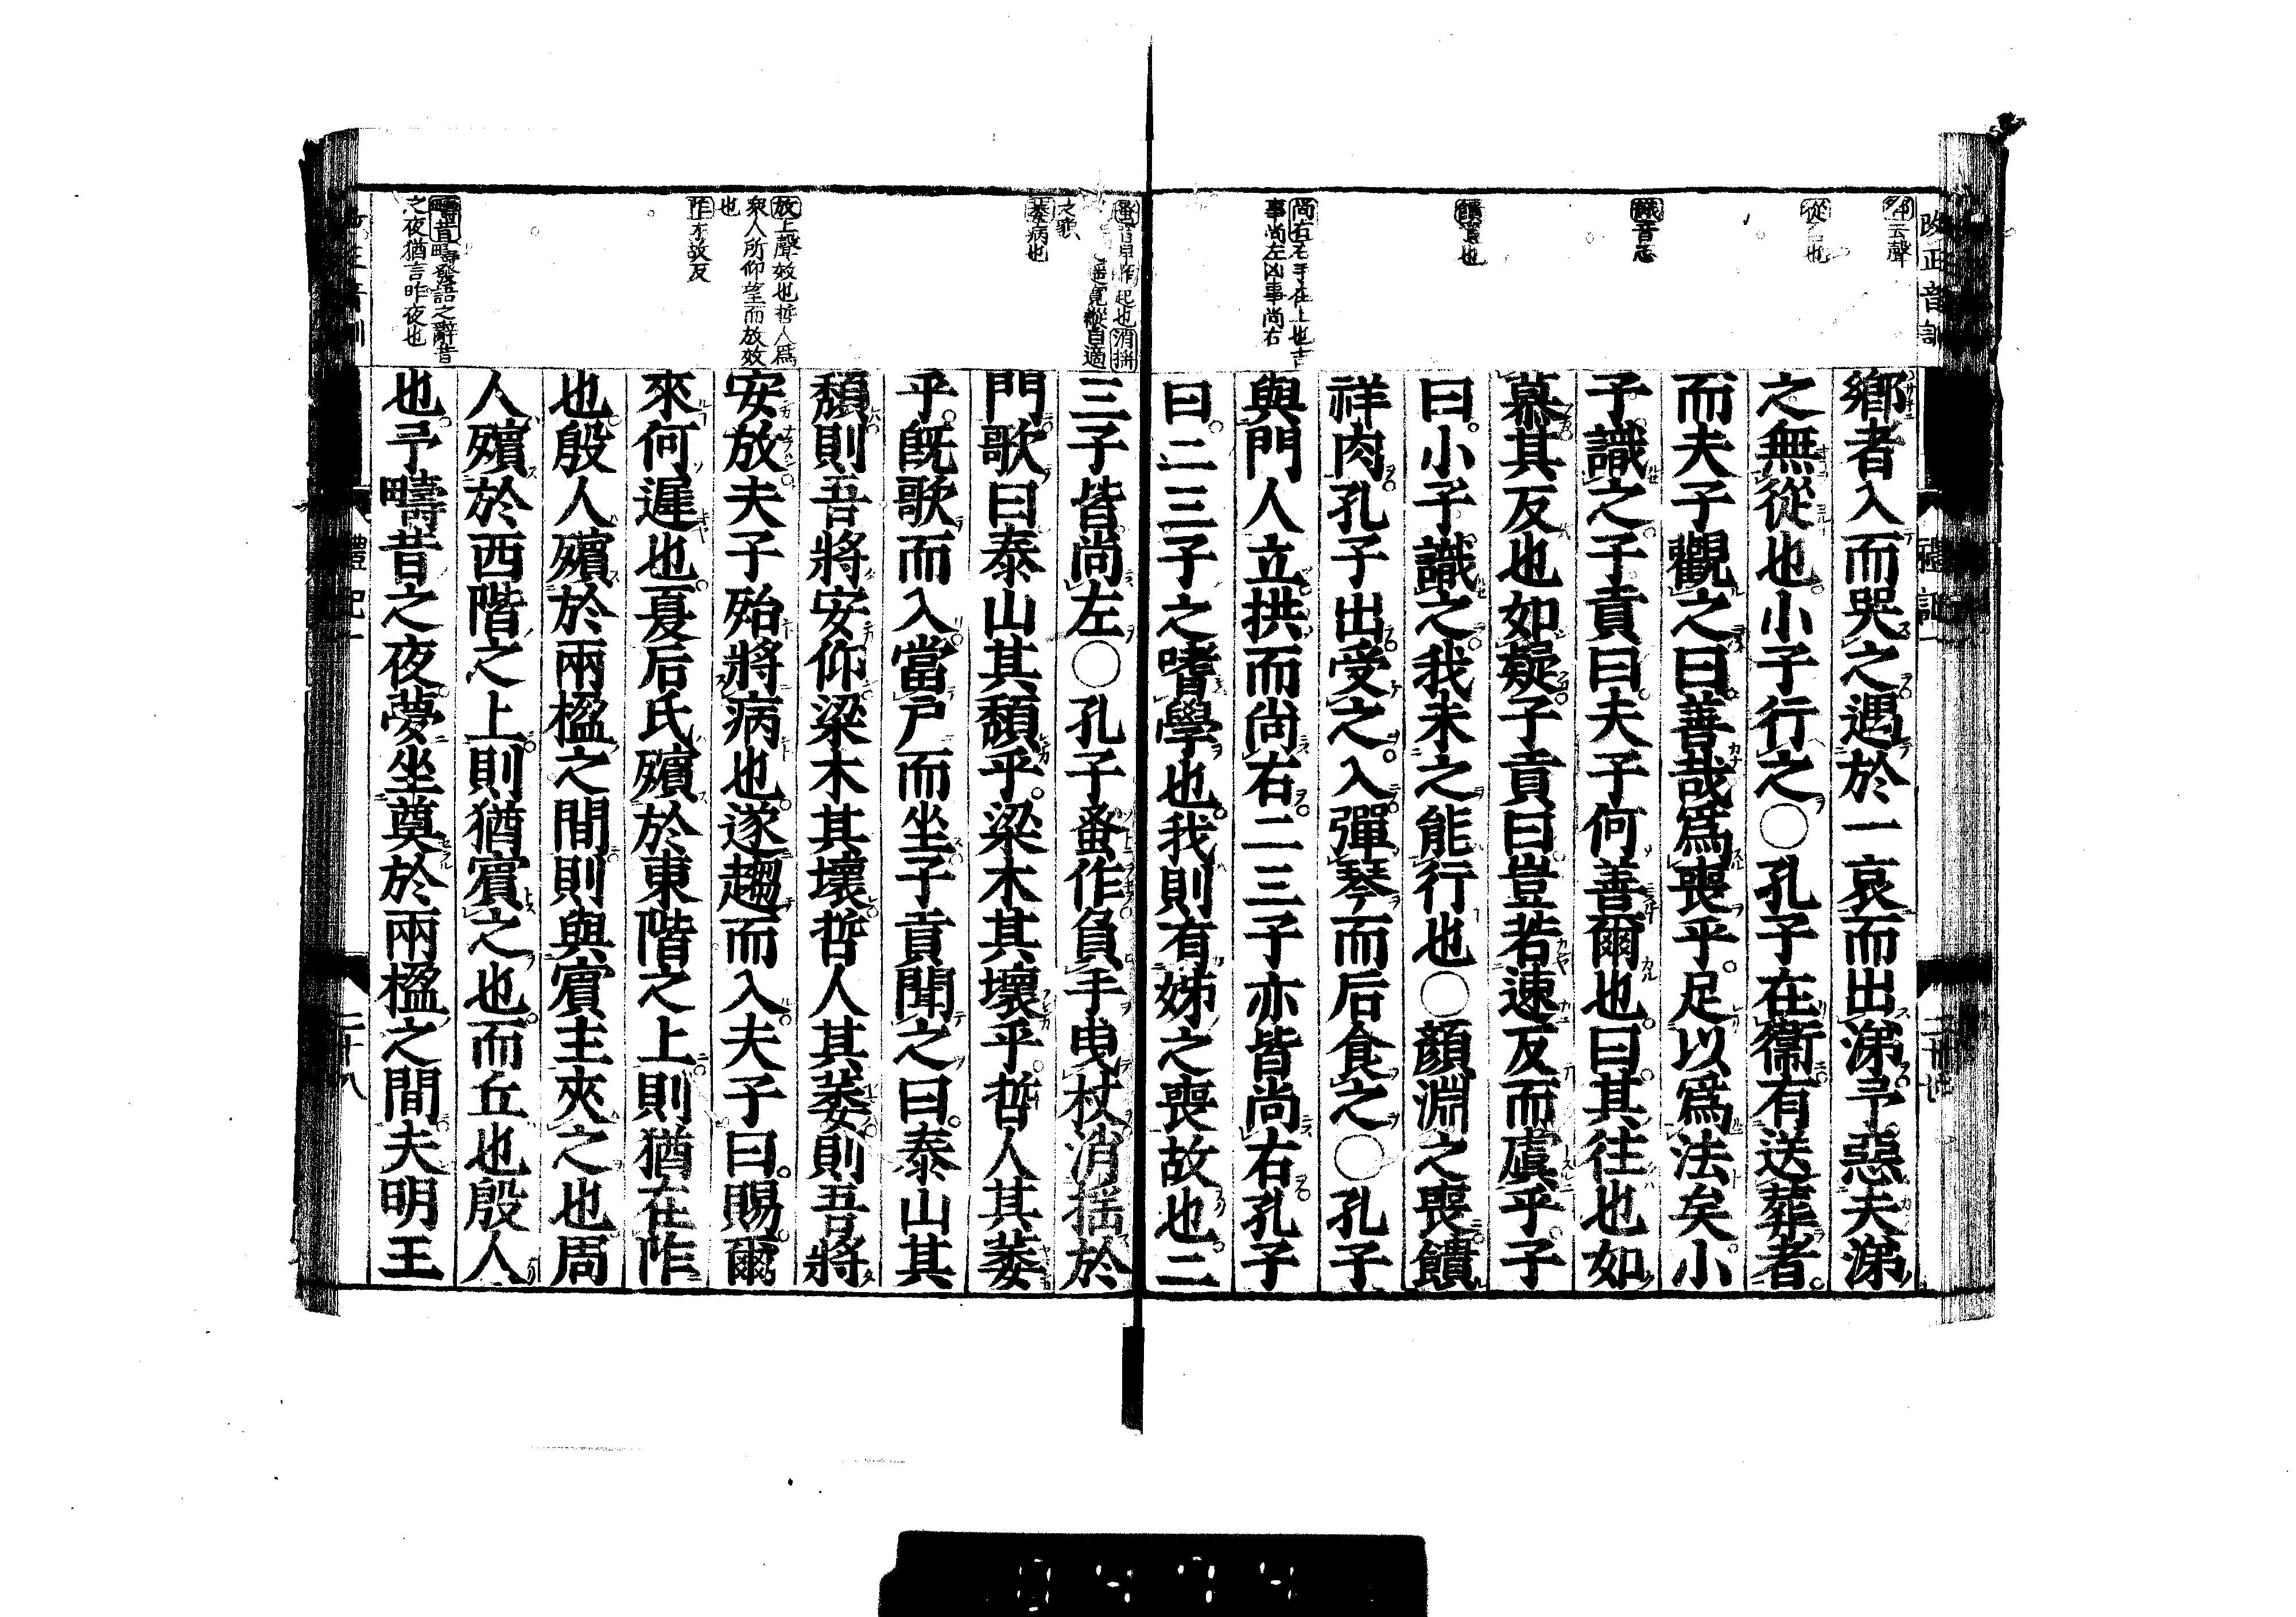 改正音訓
鄉者入而哭之遇於一哀而出涕予惡夫涕
之無從也小子行之○孔子在衞有送葬者
而夫子觀之曰善哉爲喪乎足以爲法矣小
子識之子貢曰夫子何善爾也曰其往也如
慕其反也如疑子貢曰豈若速反而虞乎子
曰小子識之我未之能行也○顏淵之喪饋
祥肉孔子出受之入彈琴而后食之○孔子
與門人立拱而尚右二三子亦皆尚右孔子
曰二三子之嗜學也我則有姊之喪故也二
尚右右手在上也吉
事尚左凶事尚右
三子皆尚左○孔子蚤作負手曳杖消搖於
門歌曰泰山其頹乎梁木其壞乎哲人其萎
乎旣歌而入當戶而坐子貢聞之曰泰山其
頹則吾將安仰梁木其壞哲人其萎則吾將
安放夫子殆將病也遂趨而入夫子曰賜爾
來何遲也夏后氏殯於東階之上則猶在阼
也殷人殯於兩楹之間則與賓主夾之也周
人殯於西階之上則猶賓之也而丘也殷人
也予疇昔之夜夢坐奠於兩楹之間夫明王
萎病也
放上聲效也哲人爲
衆人所仰望而放效
也
阼才故反
疇昔疇發語之辭昔
之夜猶言昨夜也
禮記一
二十八